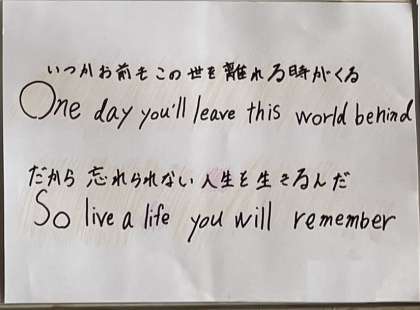 いつかお前もこの世を離れる時がくる
One day you'll leave this world behind
だから 忘れられない人生を生きるんだ
So live a life you will remember